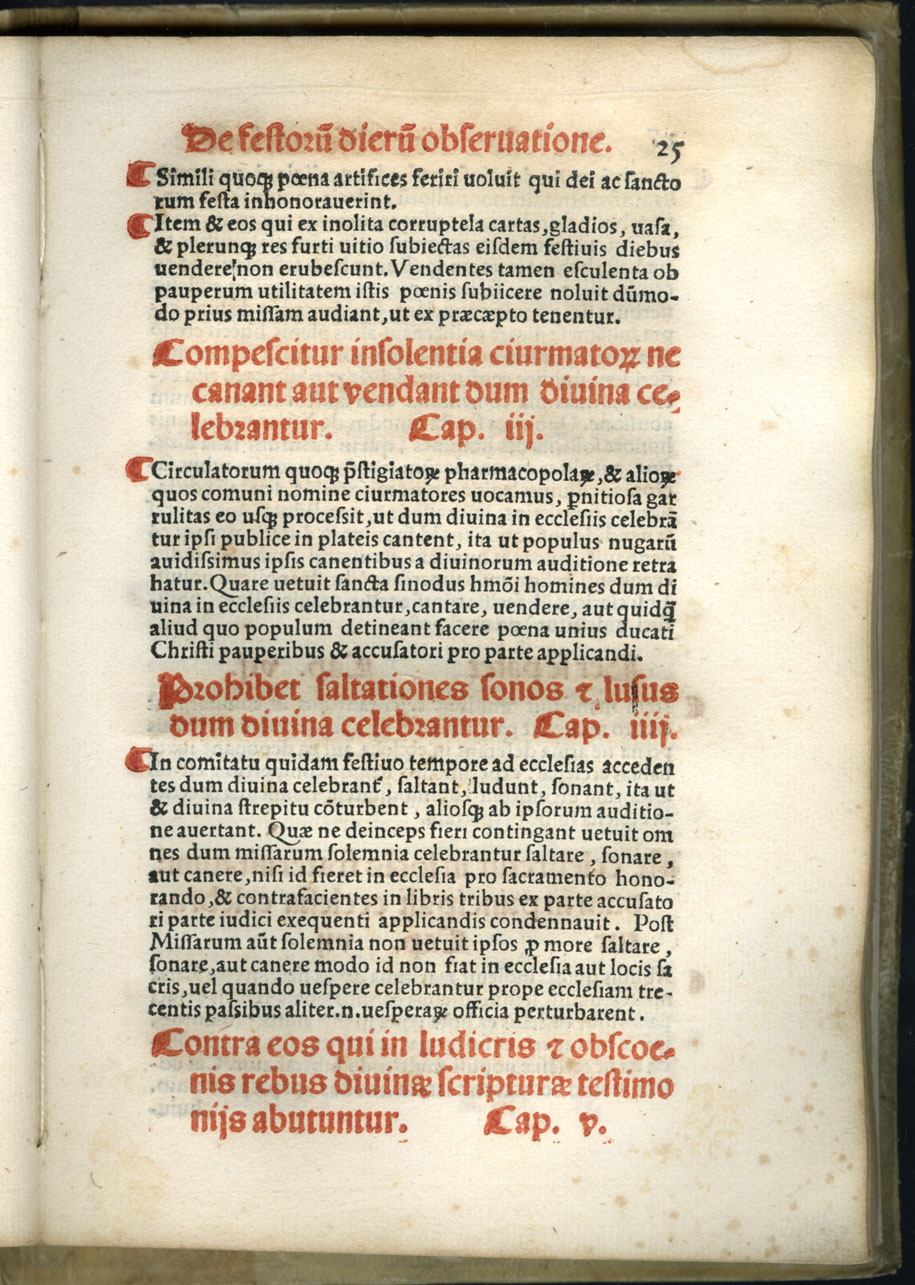 De festorū dierū obseruatione. 25
¶ Simili quoqꝫ pœna artifices feriri uoluit qui dei ac sancto
rum festa inhonorauerint.
¶ Item & eos qui ex inolita corruptela cartas, gladios, uasa,
& plerunqꝫ res furti uitio subiectas eisdem festiuis diebus
uendere non erubescunt. Vendentes tamen esculenta ob
pauperum utilitatem istis pœnis subiicere noluit dūmo-
do prius missam audiant, ut ex præcæpto tenentur.
Compescitur insolentia ciurmatoꝝ ne
canant aut vendant dum diuina ce-
lebrantur. Cap. iij.
¶ Circulatorum quoqꝫ p̄stigiatoꝝ pharmacopolaꝝ, & alioꝝ
quos comuni nomine ciurmatores uocamus, ꝑnitiosa gar
rulitas eo usqꝫ processit, ut dum diuina in ecclesiis celebrā
tur ipsi publice in plateis cantent, ita ut populus nugarū
auidissimus ipsis canentibus a diuinorum auditione retra
hatur. Quare uetuit sancta sinodus hmōi homines dum di
uina in ecclesiis celebrantur, cantare, uendere, aut quidq̄
aliud quo populum detineant facere pœna unius ducati
Christi pauperibus & accusatori pro parte applicandi.
Prohibet saltationes sonos ⁊ lusus
dum diuina celebrantur. Cap. iiij.
¶ In comitatu quidam festiuo tempore ad ecclesias acceden
tes dum diuina celebrant᷑, saltant, ludunt, sonant, ita ut
& diuina strepitu cōturbent, aliosqꝫ ab ipsorum auditio-
ne auertant. Quæ ne deinceps fieri contingant uetuit om
nes dum missarum solemnia celebrantur saltare, sonare,
aut canere, nisi id fieret in ecclesia pro sacramento hono-
rando, & contrafacientes in libris tribus ex parte accusato
ri parte iudici exequenti applicandis condennauit. Post
Missarum aūt solemnia non uetuit ipsos ꝓ more saltare,
sonare, aut canere modo id non fiat in ecclesia aut locis sa
cris, uel quando uespere celebrantur prope ecclesiam tre-
centis passibus aliter.n.uesperaꝝ officia perturbarent.
Contra eos qui in ludicris ⁊ obscoe-
nis rebus diuinæ scripturæ testimo
nijs abutuntur. Cap. v.